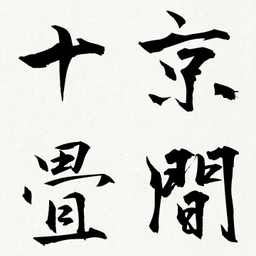 京間
十畳